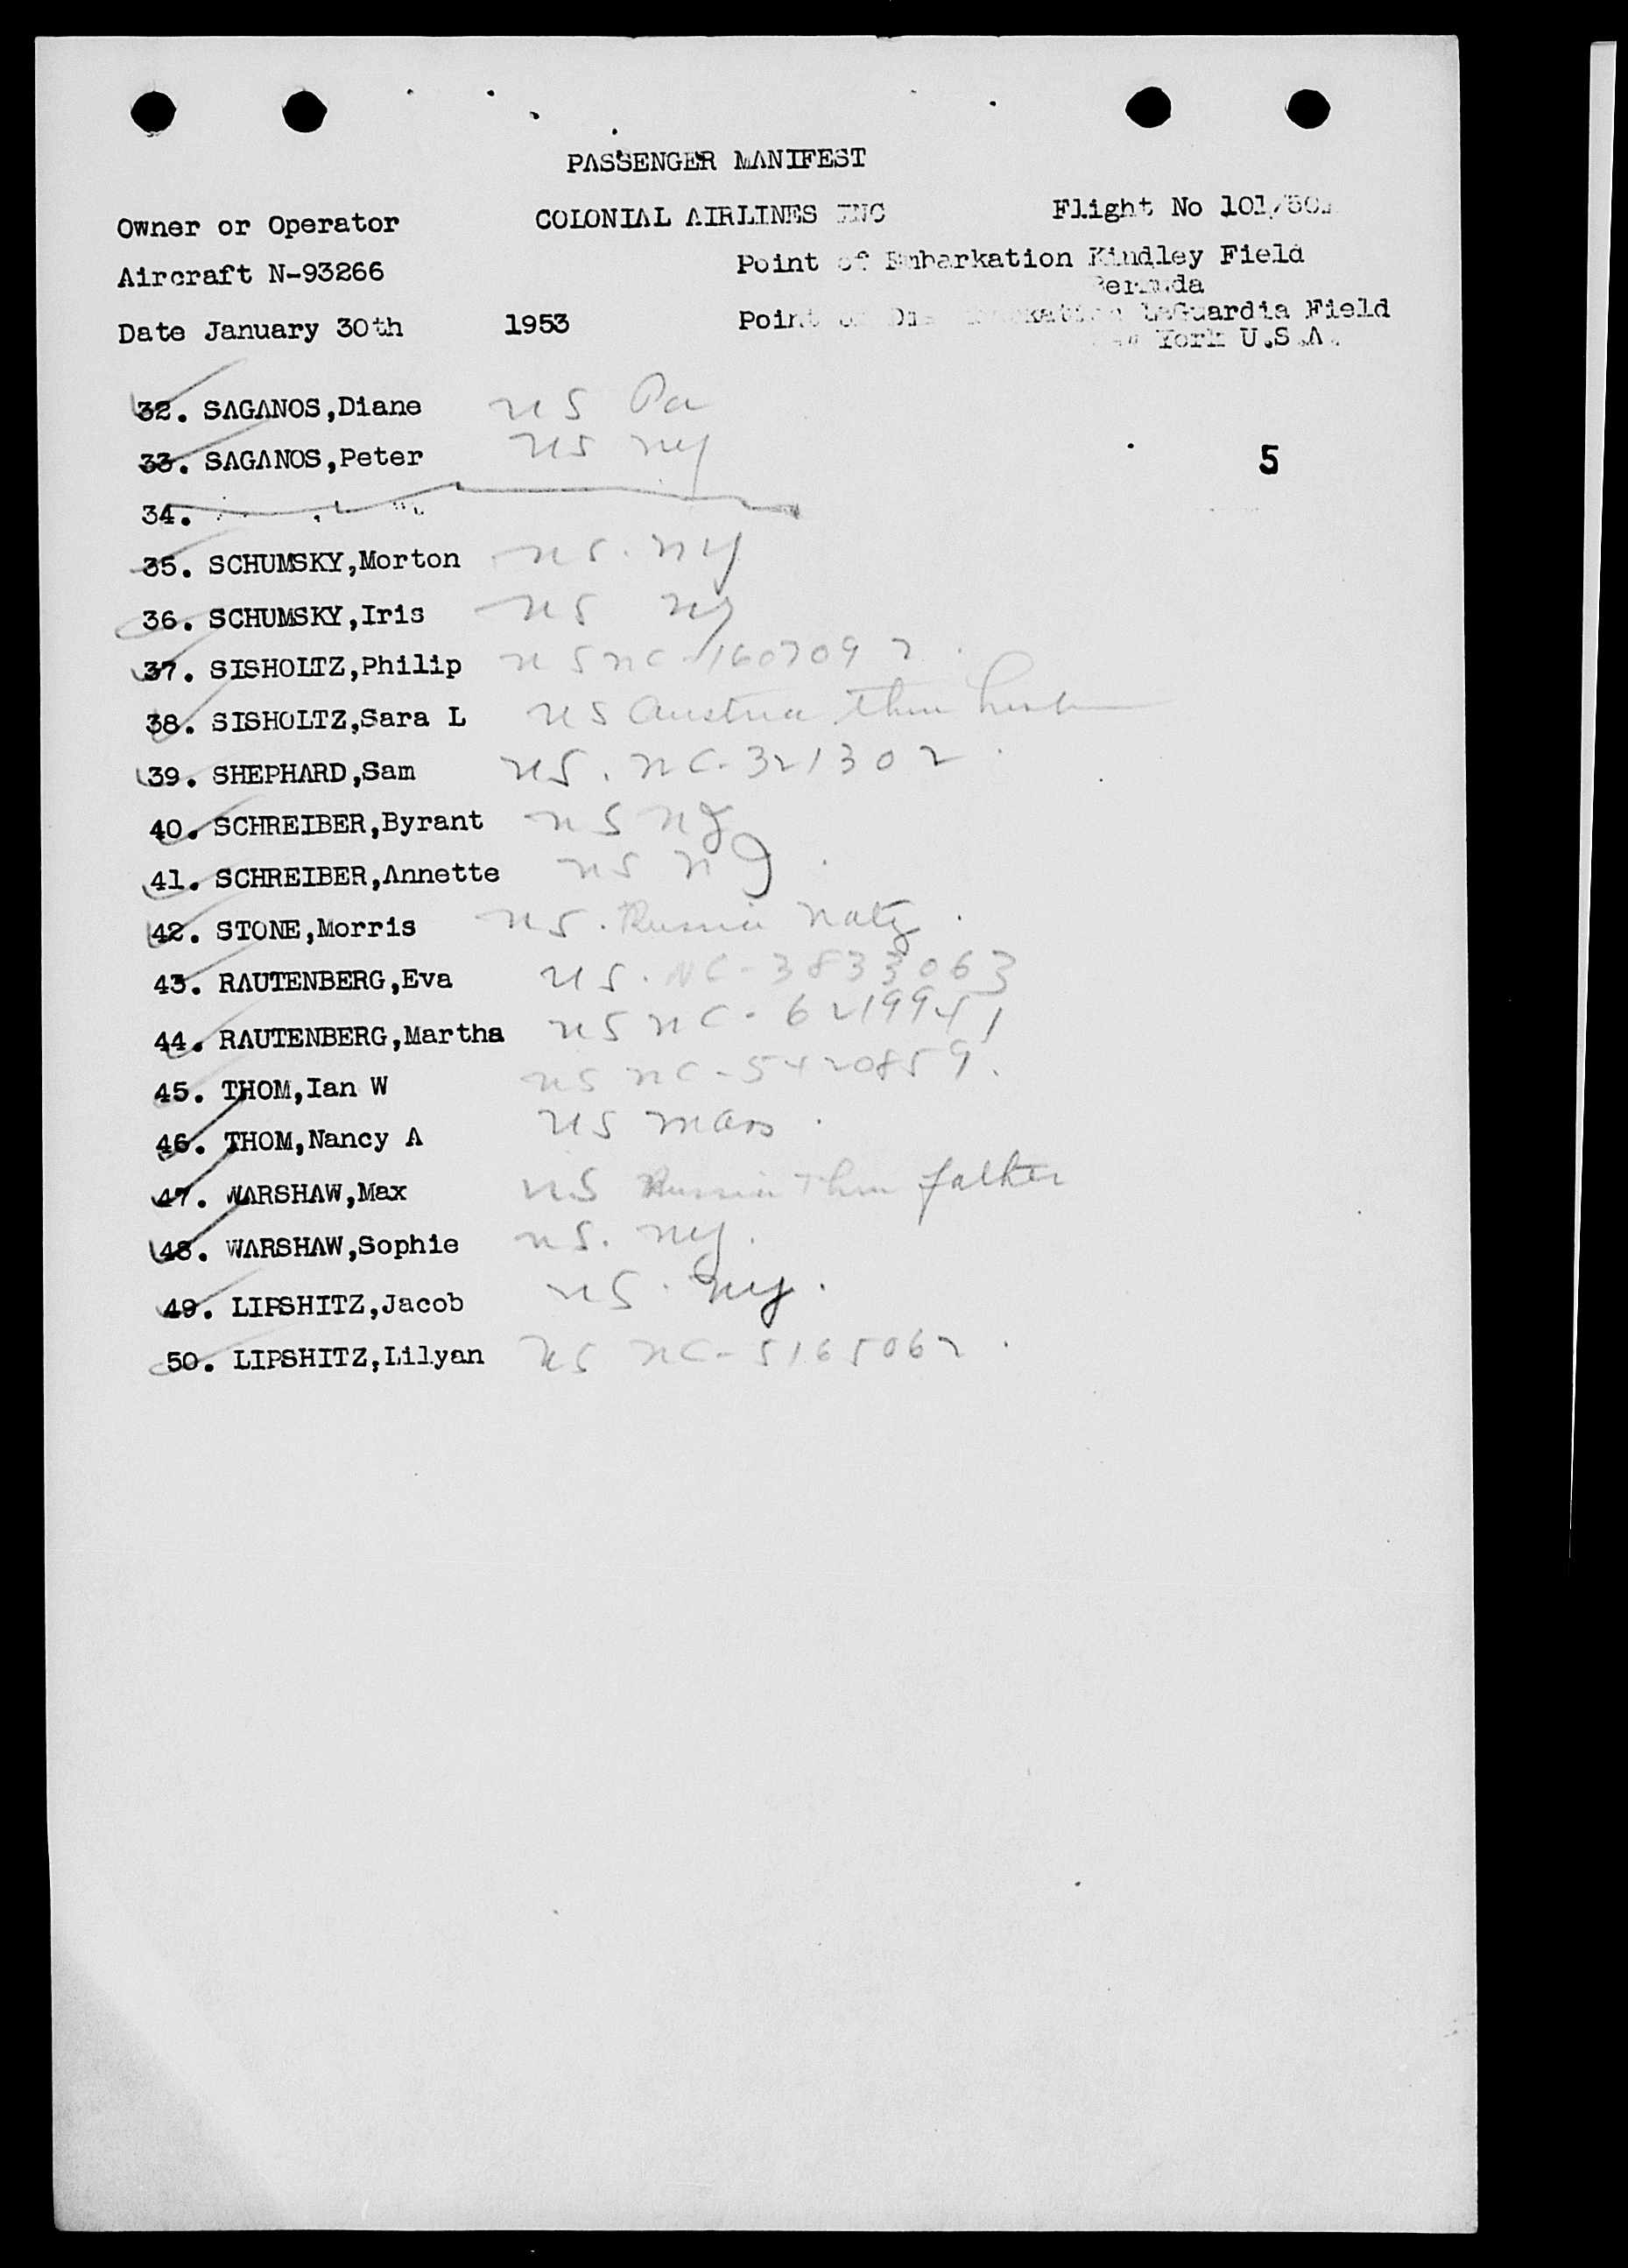 PASSENGER MANIFEST
Owner or Operator COLONIAL AIRLINES INC Flight No 101/
Aircraft N-93266 Point of Embarkation Kindley Field
Bermuda
Date January 30th 1953 Point of LaGuardia Field
York U.S.A.
32. SAGANOS,Diane US Pa
33. SAGANOS,Peter US ny
5
34.
35. SCHUMSKY,Morton US. ny
36. SCHUMSKY,Iris US ny
37. SISHOLTZ,Philip US NC-
38. SISHOLTZ,Sara L US Austria thru
39. SHEPHARD,Sam US. NC-321302.
40. SCHREIBER,Byrant US
41. SCHREIBER,Annette US
42. STONE,Morris US. Russia Natz.
43. RAUTENBERG,Eva US. NC-3833063
44. RAUTENBERG,Martha US NC-
45. THOM,Ian W US NC-5420859.
46. THOM,Nancy A US Mass.
47. WARSHAW,Max US Russia Thru father
48. WARSHAW,Sophie US. ny.
49. LIPSHITZ,Jacob US. ny.
50. LIPSHITZ,Lilyan US NC-5165062.